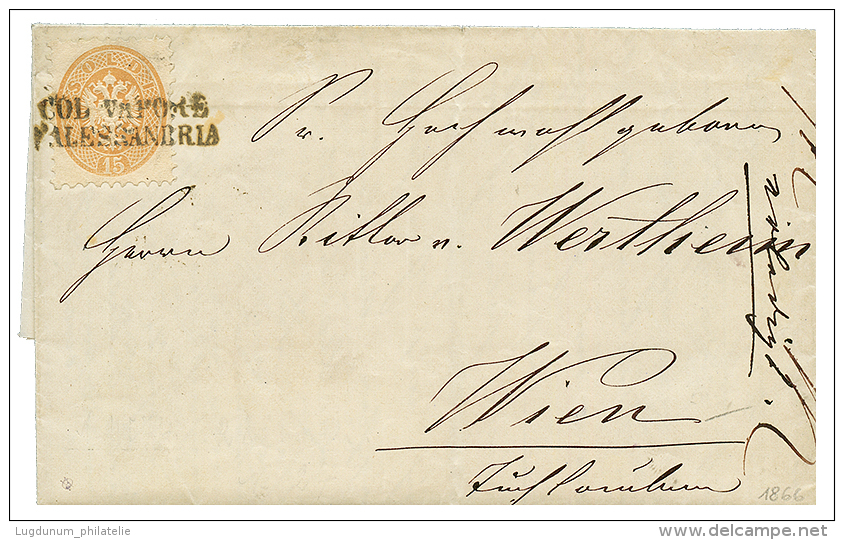 SOLDI
15
COL VAPORE
D'ALESSANDRIA
Sr. Hochwohlgeboren
Herrn Ritter v. Wertheim
Wien
Tuchlauben
1866
Lugdunum_philatelie
www.delcampe.net